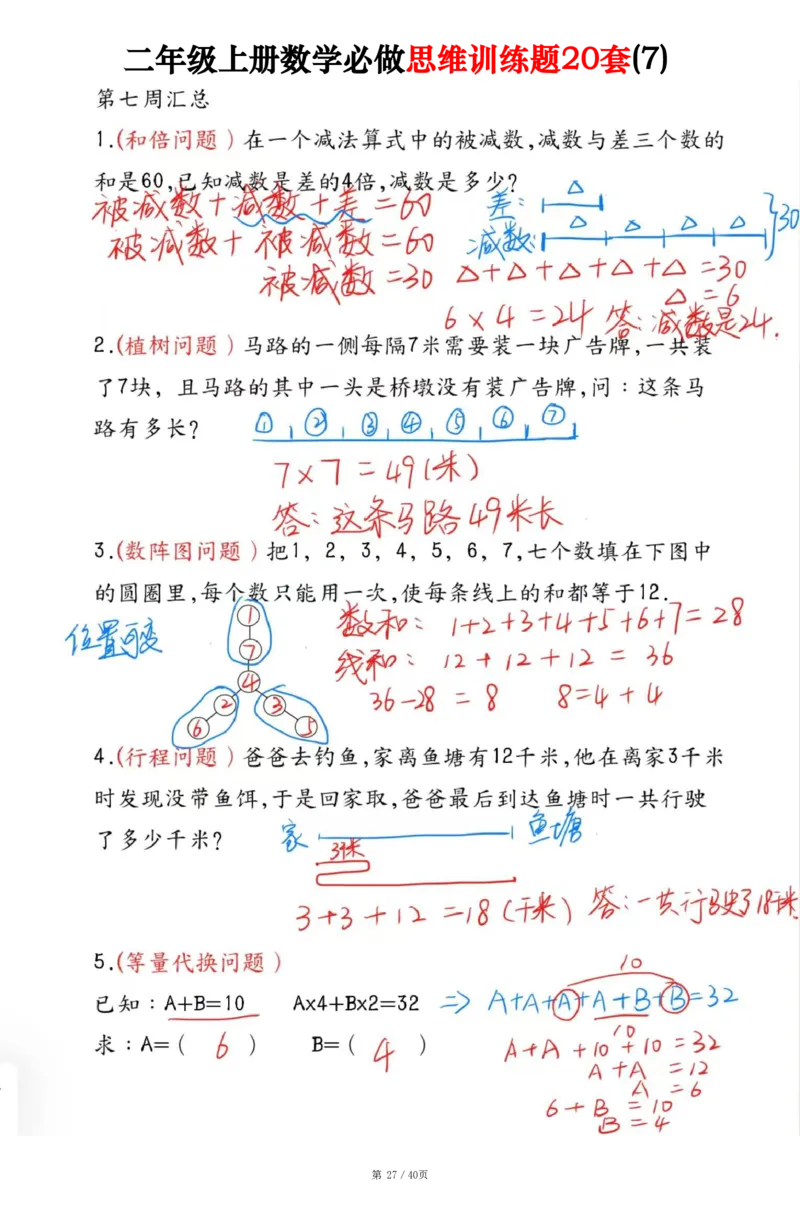 二年级上册数学必做思维训练题20套(7)
第七周汇总
1.(和倍问题)在一个减法算式中的被减数,减数与差三个数的
和是60,已知减数是差的4倍,减数是多少?
被减数+减数+差=60
被减数+被减数=60
被减数=30
差: △
减数: △ △ △ △ }30
△+△+△+△+△=30
△=6
6×4=24 答:减数是24.
2.(植树问题)马路的一侧每隔7米需要装一块广告牌,一共装
了7块, 且马路的其中一头是桥墩没有装广告牌,问:这条马
路有多长?
① ② ③ ④ ⑤ ⑥ ⑦
7×7=49(米)
答:这条马路49米长
3.(数阵图问题)把1, 2, 3, 4, 5, 6, 7,七个数填在下图中
的圆圈里,每个数只能用一次,使每条线上的和都等于12.
位置可变
1
7
4
2 3
6 5
数和: 1+2+3+4+5+6+7=28
线和: 12+12+12=36
36-28=8 8=4+4
4.(行程问题)爸爸去钓鱼,家离鱼塘有12千米,他在离家3千米
时发现没带鱼饵,于是回家取,爸爸最后到达鱼塘时一共行驶
了多少千米?
家 鱼塘
3千米
3+3+12=18(千米) 答:一共行驶了18千米
5.(等量代换问题)
10
已知:A+B=10 Ax4+Bx2=32 => A+A+A+A+B+B=32
10
求:A=( 6 ) B=( 4 )
A+A+10+10=32
A+A=12
A=6
6+B=10
B=4
第 27 / 40页